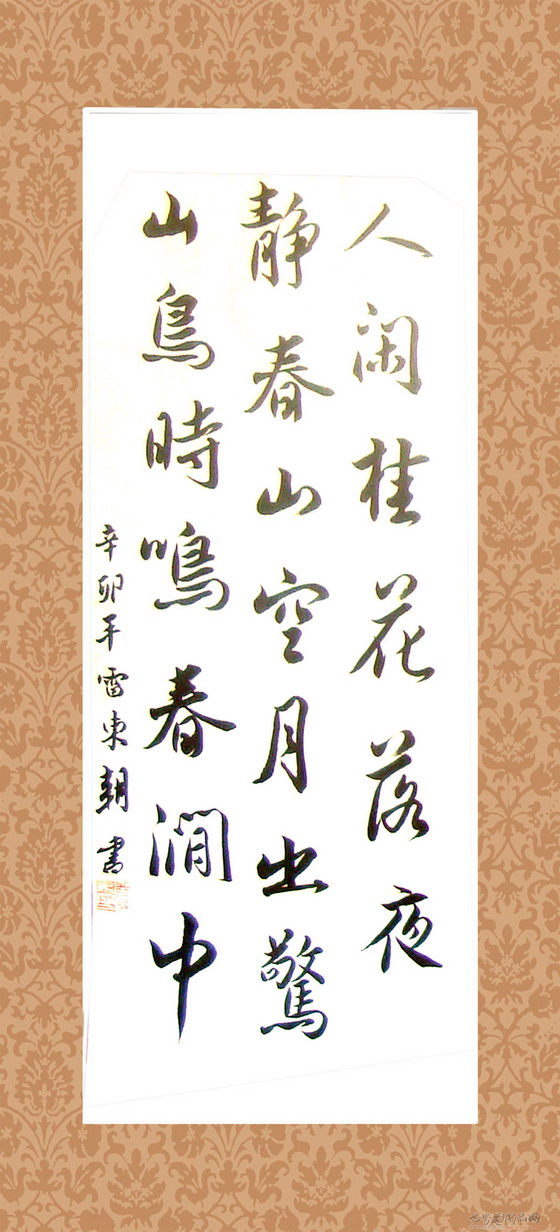 人闲桂花落夜
静春山空月出驚
山鳥時鳴春澗中
辛卯年雷東朝書